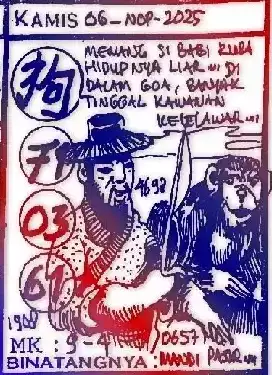 KAMIS 06-NOP-2025
MENANG SI BABI RUBA
HIDUPNYA LIAR ... DI
DALAM GOA, BANYAK
TINGGAL KAWANAN
KELELAWAR ...
狗
71
03
61
4698
1908
MK : 9-4
0657
BINATANGNYA : MANDI PASIR ...